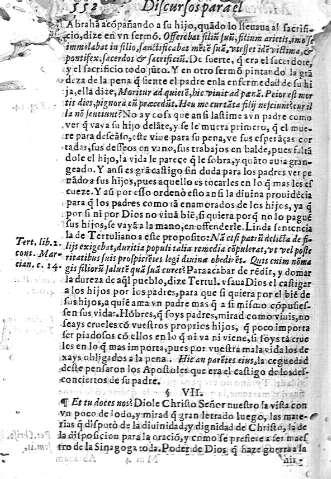 552 Discursos para el
Abrahã acõpañando a su hijo, quãdo lo lleuaua al sacrifi-
cio, dize en vn sermõ. Offerebat filiũ suũ, filium arietis, imo se
immolabat in filio, sanctificabat mẽte suã,
pontifex, sacerdos & sacrificiũ. De suerte, q̃ era el sacerdote,
y el sacrificio todo jũto. Y en otro sermõ pintando la grã
deza de la pena q̃ siente el padre en la enfermedad de su hi
ja, ella dize, Moritur ad quietẽ, hic viuit ad pœnã. Peior est mor
tis dies, pignora cũ præcedũt. Heu me curtata filij nesciunt
No ay cosa que ansi lastime a vn padre como
ver q̃ vaya su hijo delãte, y se le muera primero, q̃ el mue-
re para descãso, este viue para su pena, ve sus esperãças cor
tadas, sus desseos en vano, sus trabajos en balde, pues faltã
dole el hijo, la vida le parece q̃ le sobra, y quãto auia gran-
geado. Y ansi es grã castigo sin duda para los padres ver pe
nãdo a sus hijos, pues aquello es tocarles en lo q̃ mas les es
cueze. Y asi por esso ordenò esto a si la diuina prouidẽcia
para q̃ los padres como tã enamorados de los hijos, ya q̃
por si ni por Dios no viuã biẽ, si quiera porq̃ no lo paguẽ
sus hijos, se vayã a la mano, en offenderle. Linda sentencia
la de Tertuliano a este proposito: Nã et si patrũ delicta de fi-
lijs exigebat, duritia populi talia remedia cõpulerat, vt vel poste
ritatibus suis prospiciẽtes legi diuinæ obedirẽt. Quis enim nõ ma
gis filiorũ salutẽ quã suã curet? Para acabar de rẽdir, y domar
la dureza de aql̃ pueblo, dize Tertul. vsaua Dios el castigar
a los hijos por los padres, para que si quiera por el biẽ de
sus hijos, a quiẽ ama vn padre mas q̃ a si mismo cõpusies-
sen sus vidas. Hõbres, q̃ soys padres, mirad como viuis, no
seays crueles cõ vuestros proprios hijos, q̃ poco importa
ser piadosos cõ ellos en lo q̃ ni va ni viene, si soys tã crue
les en lo q̃ mas importa, pues por vuestra mala vida los de
xays obligados a la pena. Hic an parẽtes eius, la ceguedad
deste pensaron los Apostoles que era el castigo de los des-
conciertos de su padre.
Tert, lib. 2.
cont. Mar-
cian, c. 14.
§ VII.
¶ Et tu doces nos? Diole Christo Señor nuestro la vista con
vn poco de lodo, y mirad q̃ gran letrado luego, las mate-
rias q̃ disputò de la diuinidad, y dignidad de Christo, la de
la disposicion para la oracio, y como se prefiere a ser maes
tro de la Sinagoga toda. Poder de Dios, q̃ haze guerra a la